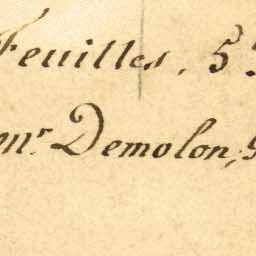 Feuilles, 5.
mr. Demolon,